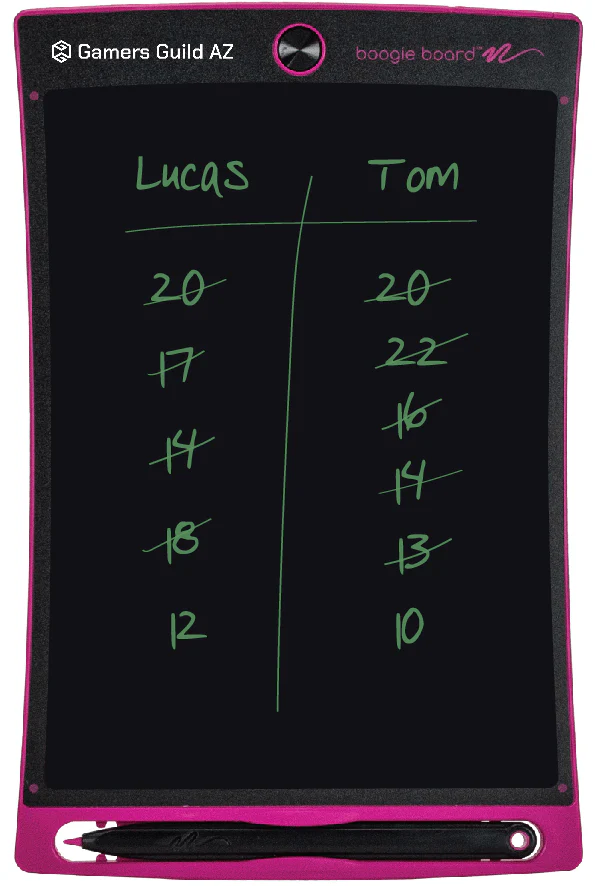 Gamers Guild AZ
boogie board™
Lucas Tom
20 20
17 22
14 16
18 14
12 13
10